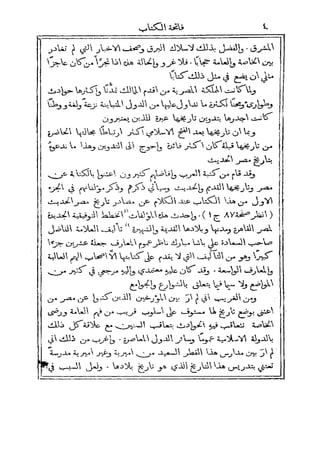 ٤ فاتحة الكتاب
المشرق. والفضل بذلك لاسلاك البرق وصحف الاخبار التي لم تغادر
بين الخاصة والعامة حجابًا. فلا غرو والحالة هذه اذا تجرّأ من كان عاجزًا
مثلي ان يضع في مثل ذلك كتابًا
ولما كانت المملكة المصرية من اقدم الممالك تمدنًا واكثرها حوادث
وطوارئ وحبًا لكثرة ما تداول عليها من الدول المتباينة نزعةً ولغةً ووطنًا
كانت اجدرها بتدوين تاريخها عبرة للذين يعتبرون
وبما ان تاريخها بعد الفتح الاسلامي اكثر ارتباطًا بحالتها الحاضرة
من تاريخها قبله كان اكثر فائدة واحوج الى التدوين وهذا ما ندعوه
بتاريخ مصر الحديث
وقد قام من كتبة العرب وافاضلهم كثيرون اعتنوا بالكتابة عن
مصر وتاريخها القديم والحديث وسيأتي ذكرهم وذكر مؤلفاتهم في الجزء
الاول من هذا الكتاب عند الكلام عن مصادر تاريخ مصر الحديث
(انظر صفحة ٨٧ ج ١). واحدث هذه المؤلفات "الخطط التوفيقية الجديدة
لمصر القاهرة ومدنها وبلادها القديمة والشهيرة" تأليف العلامة الفاضل
صاحب السعادة علي باشا مبارك ناظر عموم المعارف جعله عشرين جزءًا
كبيرًا وهو من التآليف التي لا يقدم على كتابتها الا اصحاب الهمم العالية
والمعارف الواسعة. وقد كان عليه معتمدي واليه مرجعي في كثير من
المواضع ولا سيما فيما يتعلق بالشوارع والجوامع
ومن الغريب اني لم ارَ بين المؤرخين الذين كتبوا عن مصر من
اعتنى بوضع تاريخ لها مستوف على اسلوب قريب من فهم العامة ورضى
الخاصة تتعاقب فيه الحوادث بتعاقب السنين مع علاقة كل ذلك
بالدولة الاسلامية عمومًا وسائر الدول المعاصرة. واغرب من ذلك اني
لم ارَ بين مدارس هذا القطر السعيد من اميرية وغير اميرية مدرسة
تعتني بتدريس هذا التاريخ الذي هو تاريخ بلادها. ولعل السبب في